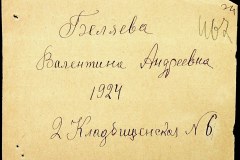 Беляева
Валентина Андреевна
1924
2 Кладбищенская № 6